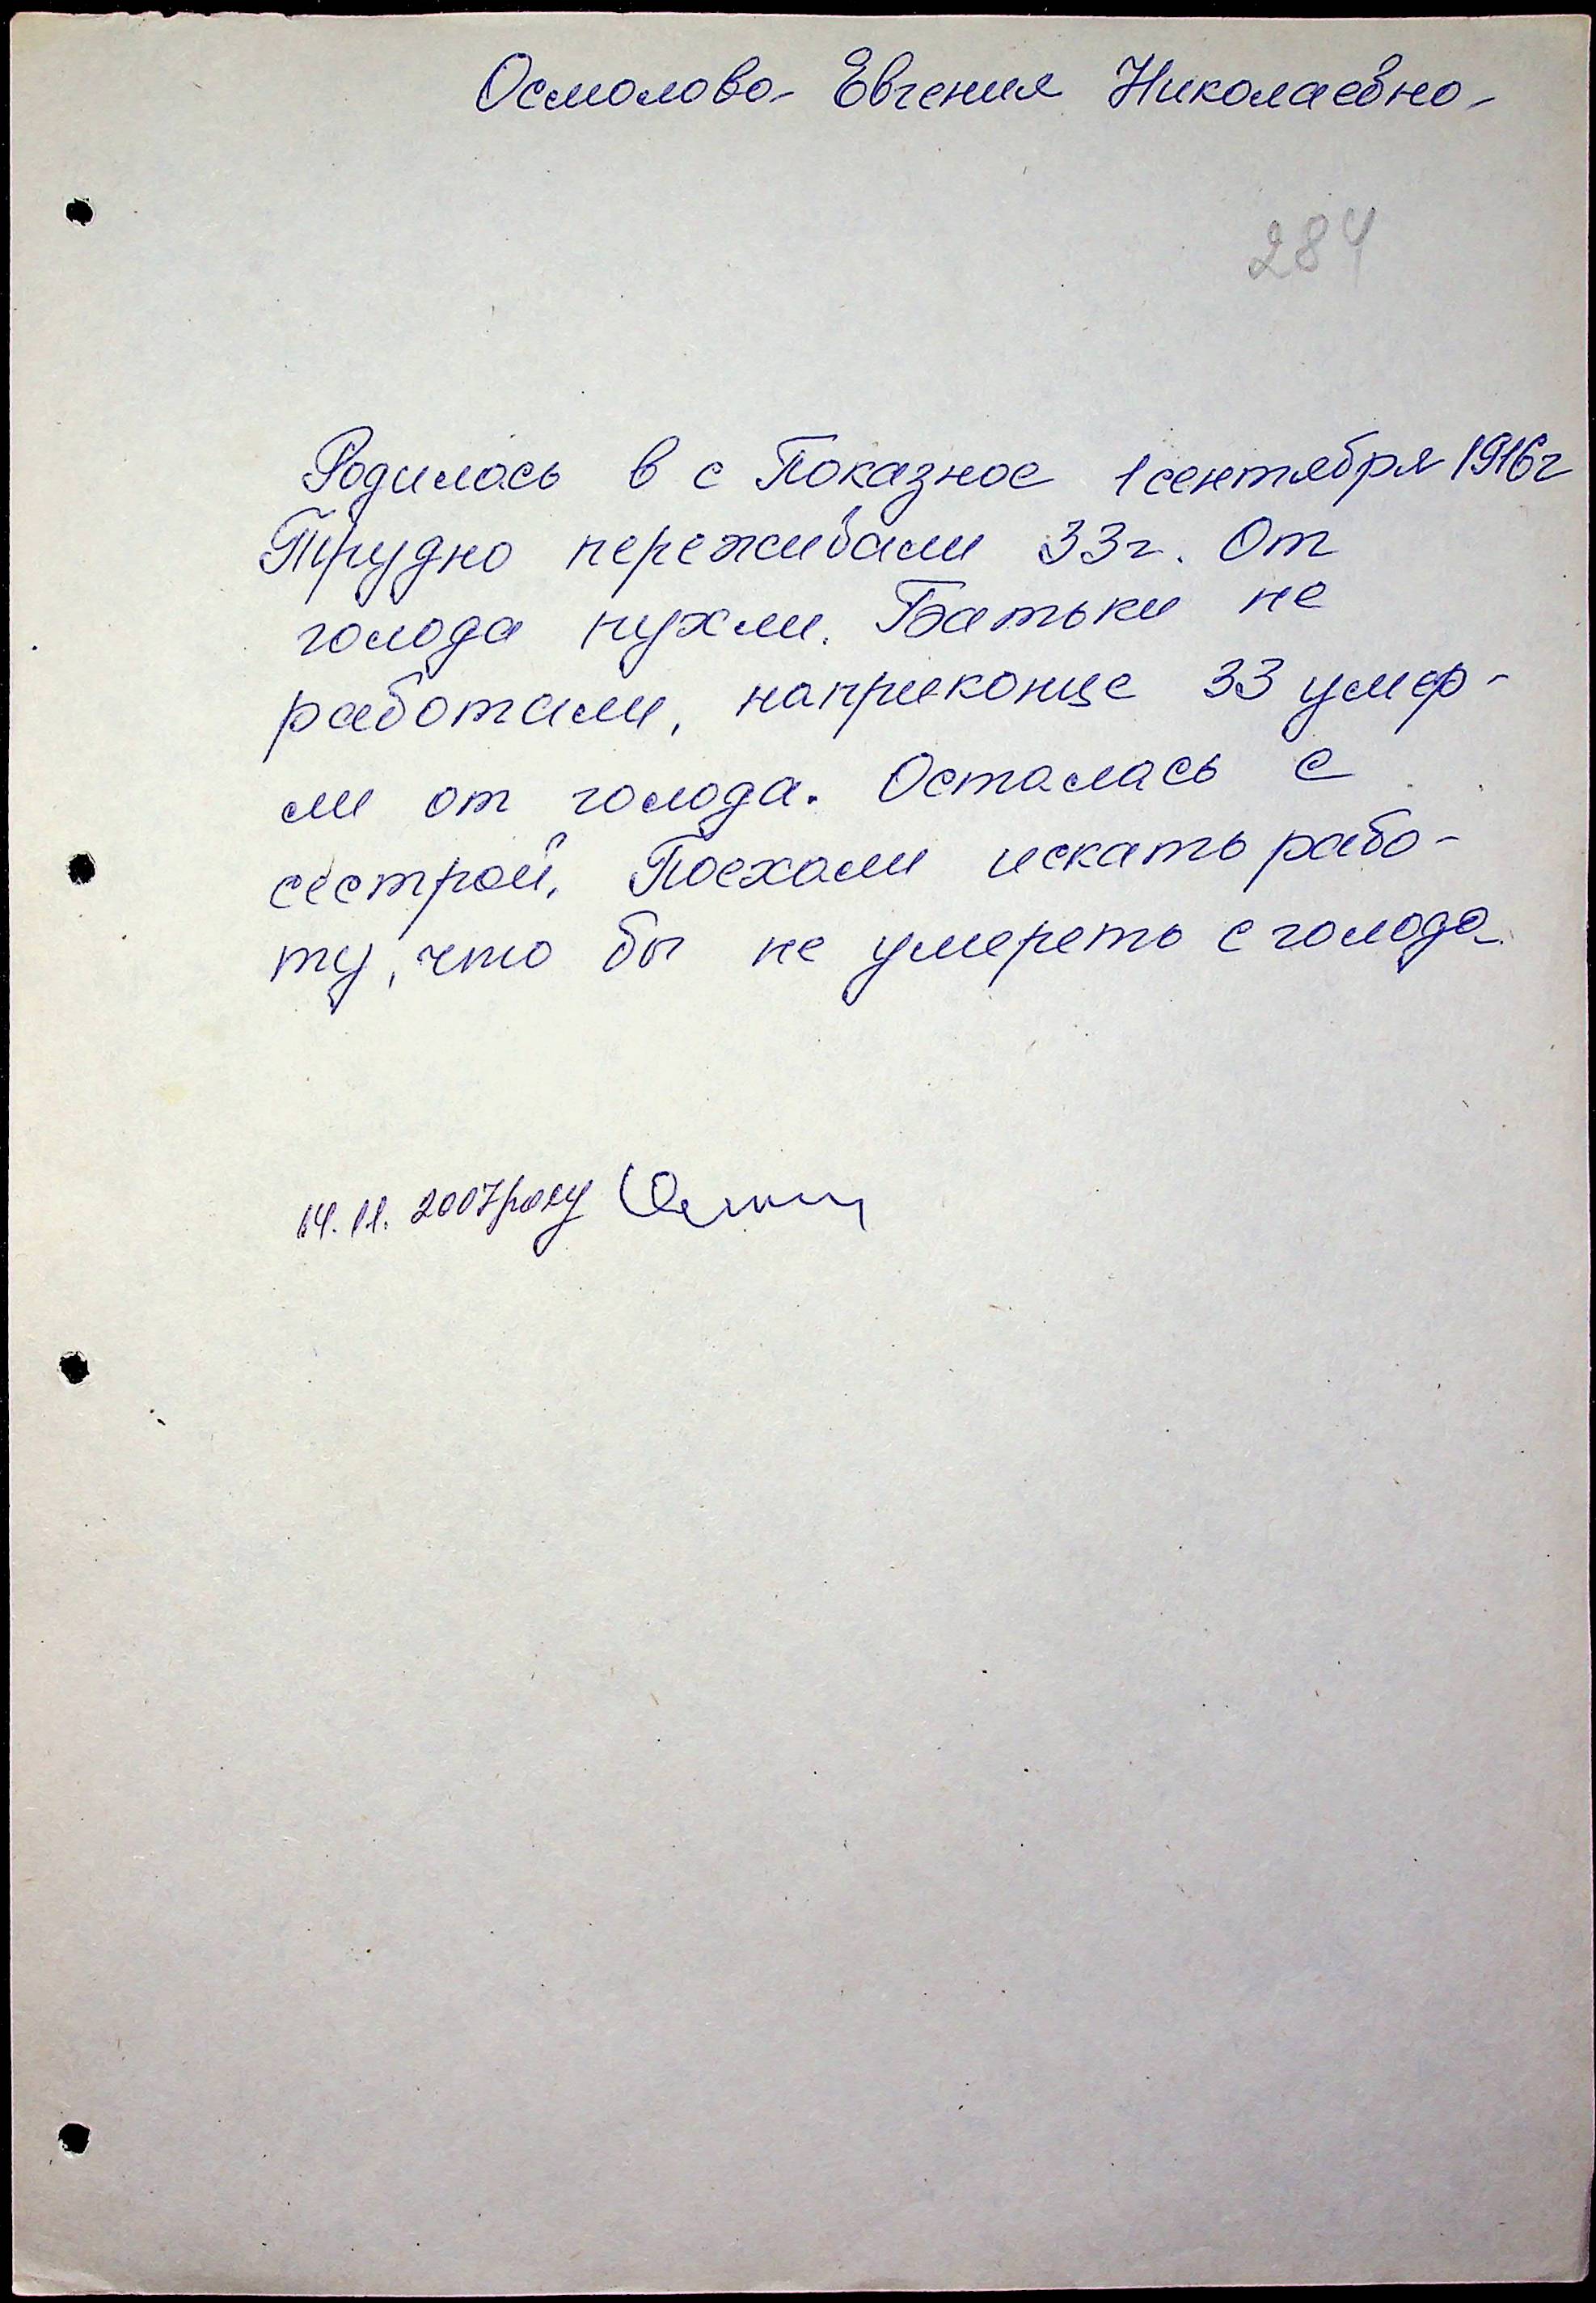 Осмолова Евгения Николаевна
284
Родилась в с Показное 1 сентября 1916г
Трудно переживали 33г. От
голода пухли. Батьки не
работали, наприконце 33 умер-
ли от голода. Осталась с
сестрой. Поехали искать рабо-
ту, что бы не умереть с голода.
14.11.2007року